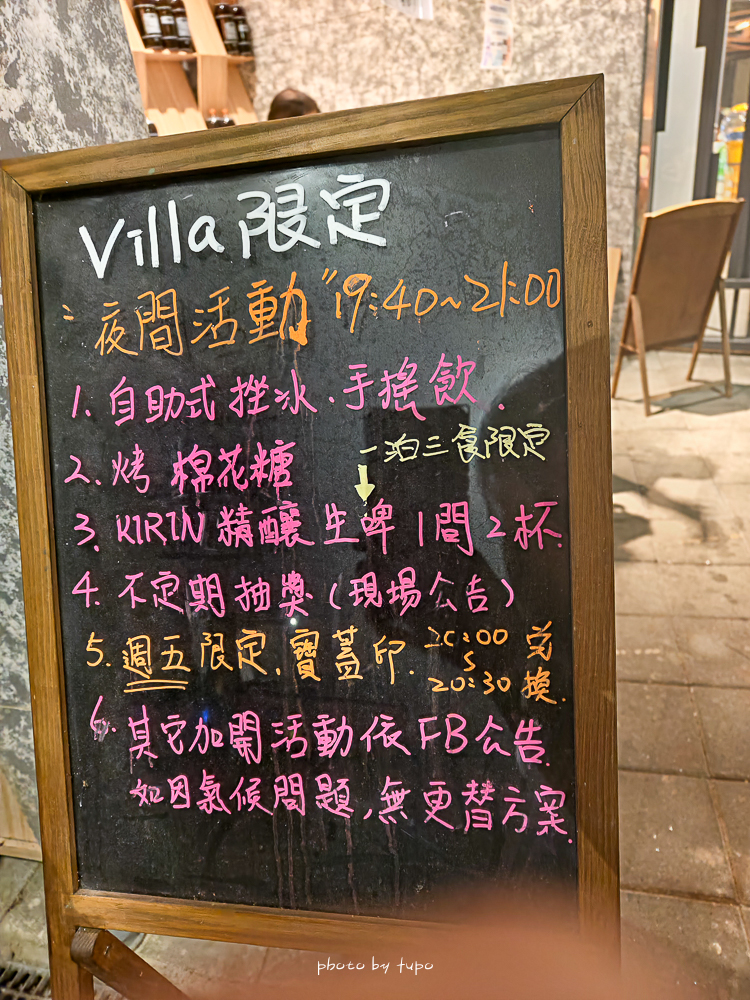 Villa 限定
"夜間活動" 19:40~21:00
1. 自助式挫冰、手搖飲.
2. 烤棉花糖
一泊三食限定
↓
3. KIRIN 精釀生啤 1間2杯.
4. 不定期抽獎 (現場公告)
5. 週五限定、寶蓋卯. 20:00 ~ 20:30 兌換.
6. 其它加開活動依FB公告.
如因氣候問題,無更替方案.
photo by tupo